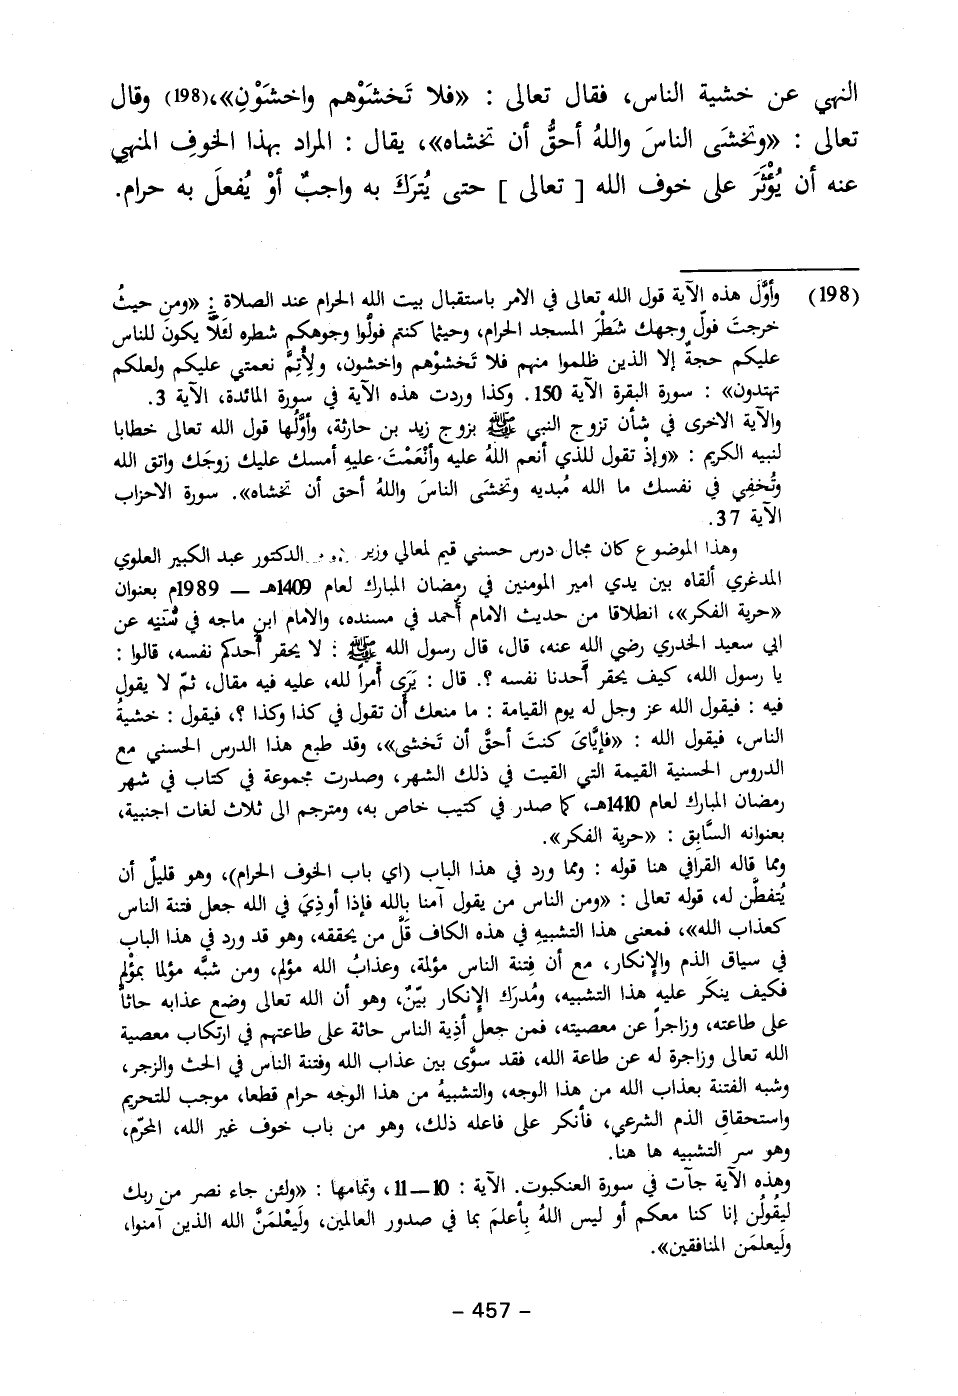 النهي عن خشية الناس، فقال تعالى : «فلا تَخشَوْهم واخشَوْنِ»،(198) وقال
تعالى : «وتخشَى الناسَ واللهُ أحقُّ أن تخشاه»، يقال : المراد بهذا الخوفِ المنهيِ
عنه أن يُؤْثَرَ على خوف الله [ تعالى ] حتى يُترَكَ به واجبٌ أوْ يُفعلَ به حرام.
(198) وأوَّلَ هذه الآية قول الله تعالى في الامر باستقبال بيت الله الحرام عند الصلاة : «ومن حيثُ
خرجتَ فولّ وجهك شَطْرَ المسجد الحرام، وحيثما كنتم فولُّوا وجوهكم شطره لئَلَّا يكونَ للناس
عليكم حجةٌ إلا الذين ظلموا منهم فلا تَخشوْهم واخشون، ولِأُتِمَّ نعمتي عليكم ولعلكم
تهتدون» : سورة البقرة الآية 150. وكذا وردت هذه الآية في سورة المائدة، الآية 3.
والآية الاخرى في شأن تزوج النبي ﷺ بزوج زيد بن حارثة، وأوَّلُها قول الله تعالى خطابا
لنبيه الكريم : «وإذْ تقول للذي أنعم اللهُ عليه وأنْعَمْتَ عليهِ أمسك عليك زوجَك واتق الله
وتُخفِي في نفسك ما الله مُبديه وتخشَى الناسَ واللهُ أحق أن تخشاه». سورة الاحزاب
الآية 37.
وهذا الموضوع كان مجال درس حسني قيم لمعالي وزير الدكتور عبد الكبير العلوي
المدغري ألقاه بين يدي امير المومنين في رمضان المبارك لعام 1409هـ ــ 1989م بعنوان
«حرية الفكر»، انطلاقا من حديث الامام أحمد في مسنده، والامام ابنِ ماجه في سُنَنِه عن
ابي سعيد الخدري رضي الله عنه، قال، قال رسول الله ﷺ : لا يحقر أحدكم نفسه، قالوا :
يا رسول الله، كيف يحقر أحدنا نفسه ؟. قال : يَرَى أمراً لله، عليه فيه مقال، ثمّ لا يقول
فيه : فيقول الله عز وجل له يوم القيامة : ما منعك أن تقول في كذا وكذا ؟، فيقول : خشيةُ
الناس، فيقول الله : «فإيَّايَ كنتَ أحقَّ أن تَخشى»، وقد طبع هذا الدرس الحسني مع
الدروس الحسنية القيمة التي القيت في ذلك الشهر، وصدرت مجموعة في كتاب في شهر
رمضان المبارك لعام 1410هـ، كما صدر في كتيب خاص به، ومترجم الى ثلاث لغات اجنبية،
بعنوانه السَّابِق : «حرية الفكر».
ومما قاله القرافي هنا قوله : ومما ورد في هذا الباب (اي باب الخوف الحرام)، وهو قليلٌ أن
يُتفطَّن له، قوله تعالى : «ومن الناس من يقول آمنا بالله فإذا أوذِيَ في الله جعل فتنة الناس
كعذاب الله»، فمعنى هذا التشبيهِ في هذه الكاف قَلَّ من يحققه، وهو قد ورد في هذا الباب
في سياق الذم والإنكار، مع أن فِتنة الناس مؤلمة، وعذابُ الله مؤلم، ومن شبَّه مؤلما بمؤْلم
فكيف ينكَر عليه هذا التشبيه، ومُدرَك الإنكار بيّنٌ، وهو أن الله تعالى وضع عذابه حاثاً
على طاعته، وزاجراً عن معصيته، فمن جعل أذِية الناس حاثة على طاعتهم في ارتكاب معصية
الله تعالى وزاجرة له عن طاعة الله، فقد سوَّى بين عذاب الله وفتنة الناس في الحث والزجر،
وشبه الفتنة بعذاب الله من هذا الوجه، والتشبيهُ من هذا الوجه حرام قطعا، موجب للتحريم
واستحقاقِ الذم الشرعي، فأنكر على فاعله ذلك، وهو من باب خوف غير الله، المحرّم،
وهو سر التشبيه ها هنا.
وهذه الآية جآت في سورة العنكبوت. الآية : 10—11، وتمامها : «ولئن جاء نصر من ربك
ليقُولُن إنا كنا معكم أو ليس اللهُ بأعلمَ بما في صدور العالمين، ولَيَعْلَمَنَّ الله الذين آمنوا،
ولَيعلمَن المنافقين».
- 457 -